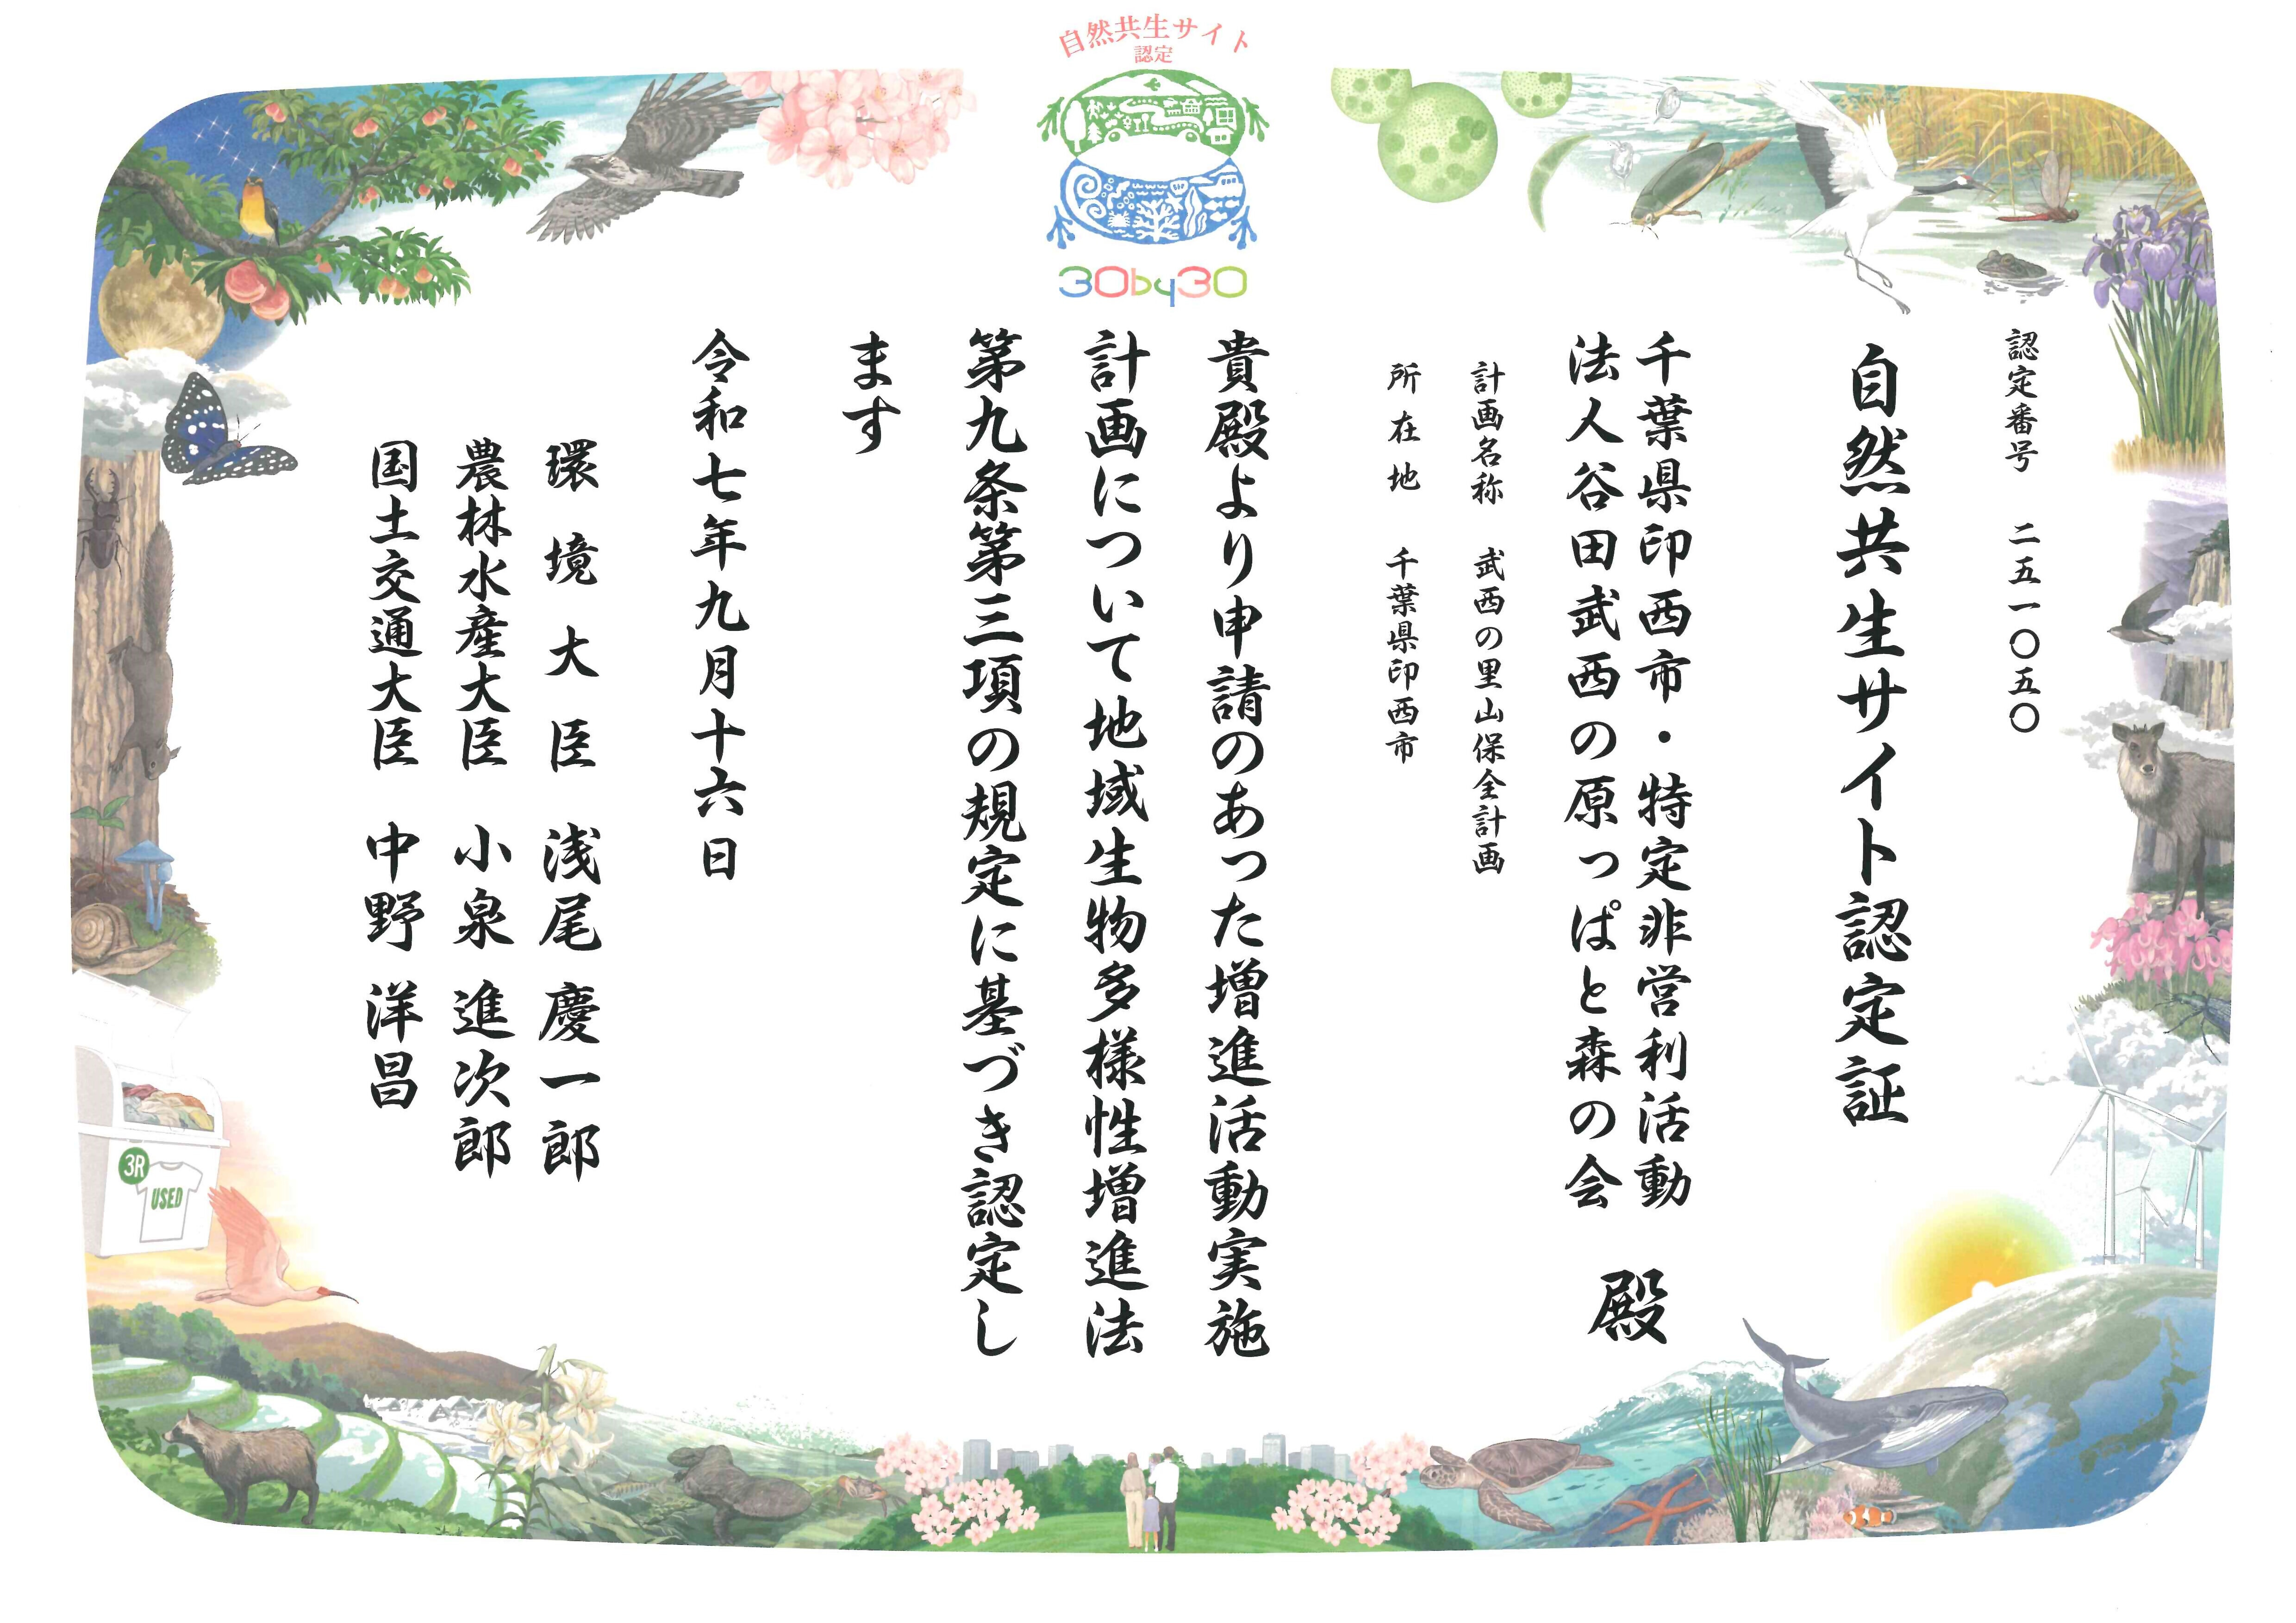 自然共生サイト
認定
30by30
認定番号 二五一〇五〇
自然共生サイト認定証
千葉県印西市・特定非営利活動
法人谷田武西の原っぱと森の会 殿
計画名称 武西の里山保全計画
所在地 千葉県印西市
貴殿より申請のあった増進活動実施
計画について地域生物多様性増進法
第九条第三項の規定に基づき認定し
ます
令和七年九月十六日
環境大臣 浅尾 慶一郎
農林水産大臣 小泉 進次郎
国土交通大臣 中野 洋昌
3R
USED